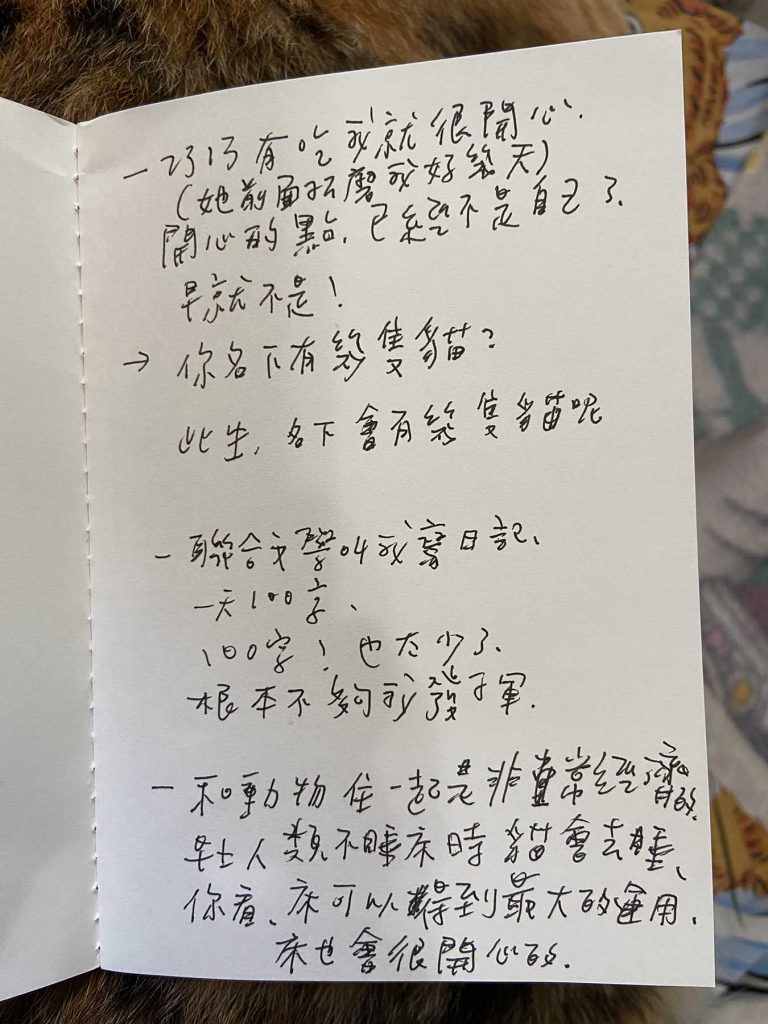 一 巧巧有吃我就很開心.
(她前面折磨我好幾天)
開心的點、已經不是自己了.
早就不是!
→ 你名下有幾隻貓?
此生, 名下會有幾隻貓呢
一 聯合文學叫我寫日記、
一天100字、
100字! 也太少了、
根本不夠我發揮.
一 和動物住一起是非常經濟的.
人類不睡床時 貓會去睡、
你看、床可以得到最大的運用、
床也會很開心的.